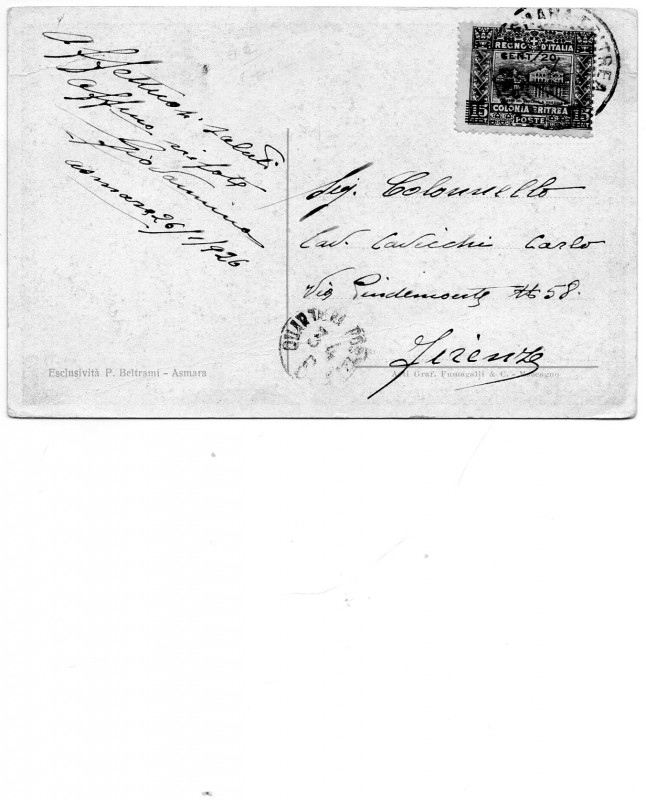 Affettuosi saluti
aff.mo nipote
Giovannino
asmara 26/1/926
ASMARA ERITREA
REGNO D'ITALIA
CENT/20
15 COLONIA ERITREA 15
POSTE
Sig. Colonnello
Cav. Cavicchi Carlo
Via Pindemonte N 58.
Firenze
QUARTA
Esclusività P. Beltrami - Asmara
Graf. Fumagalli & C. -